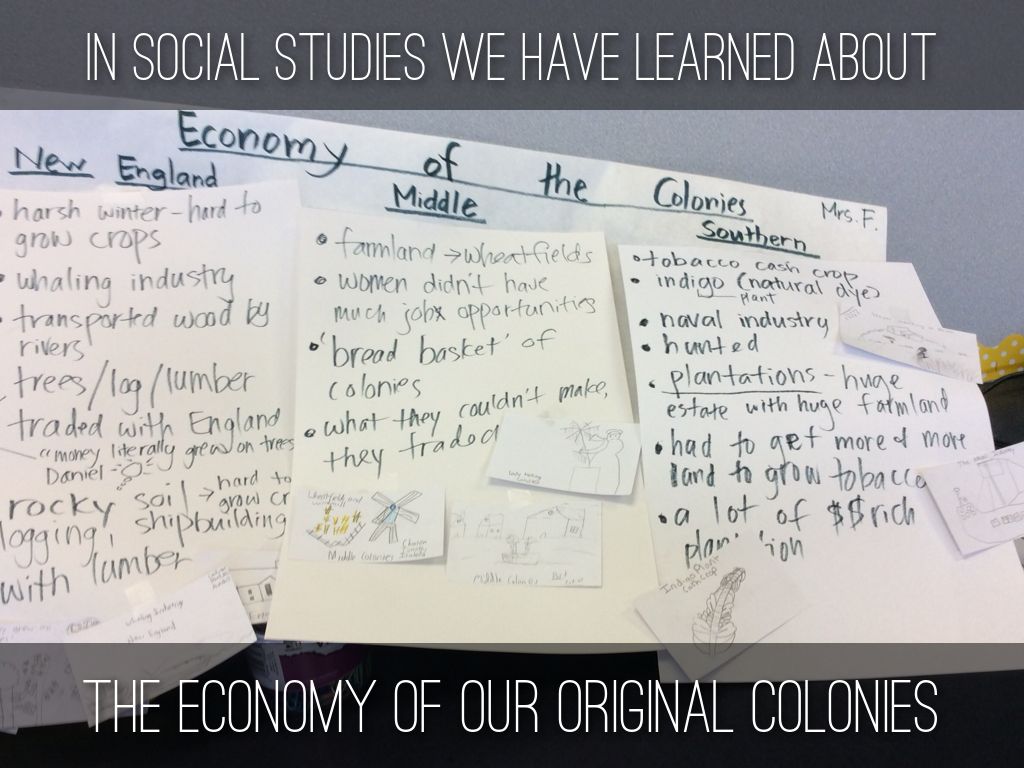 IN SOCIAL STUDIES WE HAVE LEARNED ABOUT
Economy of the Colonies
Mrs. F.
New England
• harsh winter - hard to
grow crops
• whaling industry
• transported wood by
rivers
trees/log/lumber
traded with England
"money literally grew on trees
Daniel
rocky soil → hard to
grow cr
logging, shipbuilding
with lumber
Whaling Industry
New England
Middle
• farmland → wheatfields
• women didn't have
much jobs opportunities
• 'bread basket' of
colonies
• what they couldn't make,
they traded
Middle Colonies
Middle Colonies
Southern
• tobacco cash crop
• indigo (natural dye)
plant
• naval industry
• hunted
• plantations - huge
estate with huge farmland
• had to get more & more
land to grow tobacco
• a lot of $$ rich
Indigo Plant
Cash crop
THE ECONOMY OF OUR ORIGINAL COLONIES